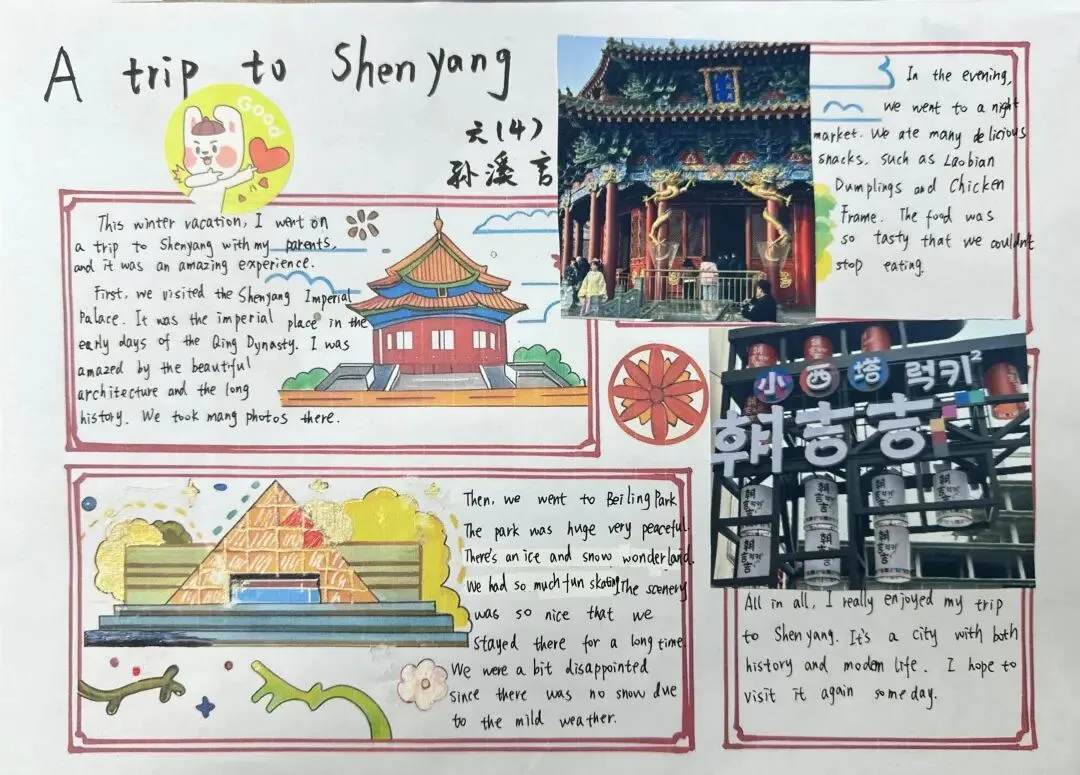 A trip to Shenyang
Good
六(4)
孙溪言
This winter vacation, I went on
a trip to Shenyang with my parents,
and it was an amazing experience.
First, we visited the Shenyang Imperial
Palace. It was the imperial place in the
early days of the Qing Dynasty. I was
amazed by the beautiful
architecture and the long
history. We took mang photos there.
Then, we went to Bei ling Park
The park was huge very peaceful.
There's an ice and snow wonderland.
We had so much fun skating The scenery
was so nice that we
stayed there for a long time
We were a bit disappointed
since there was no snow due
to the mild weather.
In the evening,
we went to a night
market. We ate many delicious
snacks, such as Laobian
Dumplings and Chicken
Frame. The food was
so tasty that we couldn't
stop eating.
小西塔 럭키²
朝吉吉
All in all, I really enjoyed my trip
to Shenyang. It's a city with both
history and modern life. I hope to
visit it again someday.